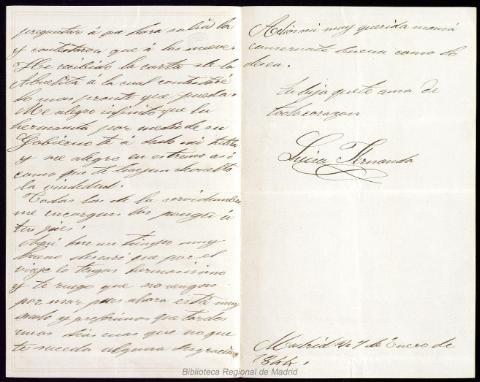 preguntar á qe hora salió la
y contestaron que á las nueve.
He recibido la carta de la
Abuelita á la cual contestaré
lo mas pronto que pueda.
Me alegro infinito que la
por medio de su
Gobierno te á dado mi
y me alegro en estremo así
como que te hayan devuelto
la viudedad.
Todas las de la servidumbre
me encargan los ponga á
tus pies.
Aquí hace un tiempo muy
bueno deseo que por el
viaje lo tengas hermosísimo
y te ruego que no vengas
por mar pues ahora está muy
malo y preferimos que tardes
unos dias mas que no que
te suceda alguna desgracia.
Adios mi muy querida mamá
consérvate buena como lo
desea.
tu hija que te ama de
todo corazon
Luisa Fernanda
Madrid 7 de Enero de
1844.
Biblioteca Regional de Madrid